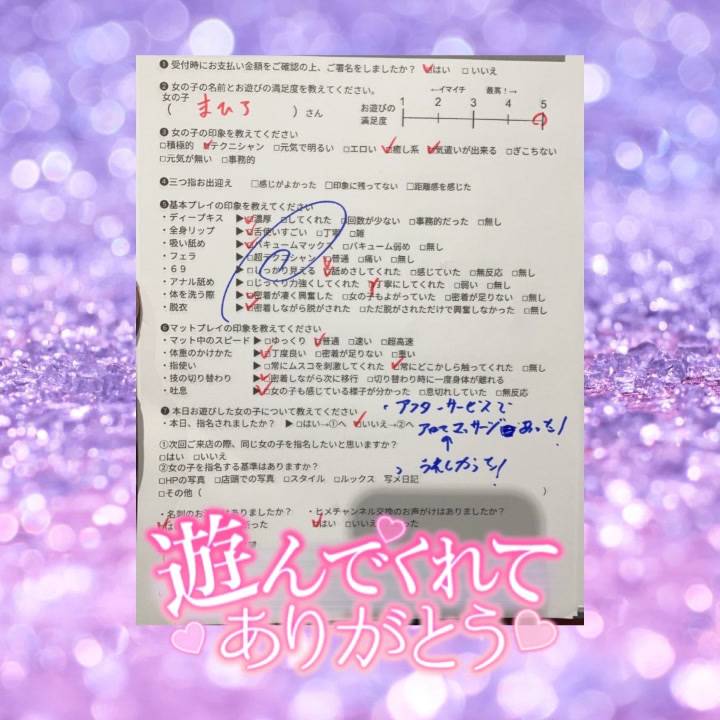 ❶ 受付時にお支払い金額をご確認の上、ご署名をしましたか? □はい □いいえ
❷ 女の子の名前とお遊びの満足度を教えてください。
←イマイチ 最高!→
女の子
( まひろ ) さん
お遊びの満足度
1 2 3 4 5
❸ 女の子の印象を教えてください
□積極的 □テクニシャン □元気で明るい □エロい □癒し系 □気遣いが出来る □ぎこちない
□元気が無い □事務的
❹ 三つ指お出迎え □感じがよかった □印象に残ってない □距離感を感じた
❺ 基本プレイの印象を教えてください
・ディープキス ▶□濃厚 □してくれた □回数が少ない □事務的だった □無し
・全身リップ ▶□舌使いすごい □丁寧 □雑
・吸い舐め ▶□バキュームマックス □バキューム弱め □無し
・フェラ ▶□超テクニシャン □普通 □痛い □無し
・69 ▶□じっかり見える □舐めさしてくれた □感じていた □無反応 □無し
・アナル舐め ▶□じっくり力強くしてくれた □丁寧にしてくれた □弱い □無し
・体を洗う際 ▶□密着が凄く興奮した □女の子もよがっていた □密着が足りない □無し
・脱衣 ▶□密着しながら脱がされた □ただ脱がされただけで興奮しなかった □無し
❻ マットプレイの印象を教えてください
・マット中のスピード ▶□ゆっくり □普通 □速い □超高速
・体重のかけかた ▶□丁度良い □密着が足りない □重い
・指使い ▶□常にムスコを刺激してくれた □常にどこかしら触ってくれた □無し
・技の切り替わり ▶□密着しながら次に移行 □切り替わり時に一度身体が離れる
・吐息 ▶□女の子も感じている様子が分かった □息切れしていた □無反応
❼ 本日お遊びした女の子について教えてください
・本日、指名されましたか? ▶□はい→①へ □いいえ→②へ
・アフターサービスで
アロママッサージあった!
↑
うれしかった!
①次回ご来店の際、同じ女の子を指名したいと思いますか?
□はい □いいえ
②女の子を指名する基準はありますか?
□HPの写真 □店頭での写真 □スタイル □ルックス 写メ日記
□その他( )
・名刺のお ありましたか? ・ヒメチャンネル交換のお声がけはありましたか?
った □はい □いいえ った
遊んでくれて
ありがとう